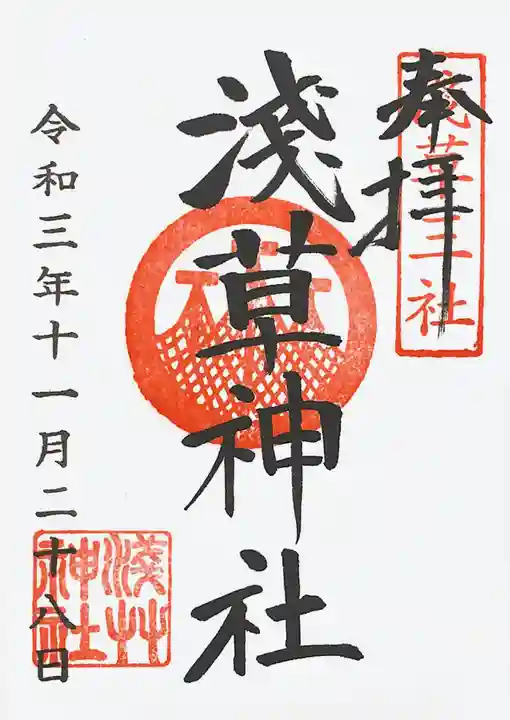 奉拝
淺草三社
淺草神社
令和三年十一月二十八日
淺草
神社